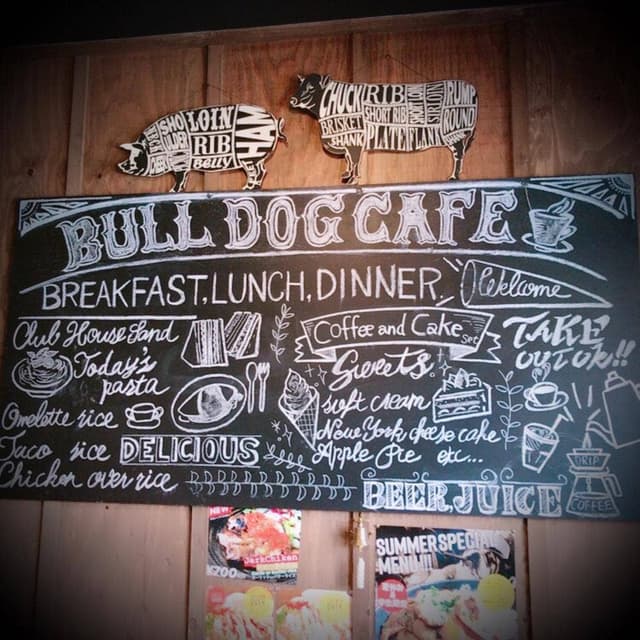 SHOULDER LOIN RIB BELLY HAM
CHUCK RIB RUMP
BRISKET SHORT RIB ROUND
SHANK PLATE FLANK
BULL DOG CAFE
BREAKFAST, LUNCH, DINNER Welcome
Club House Sand
Today's
pasta
Omelette rice
Taco rice DELICIOUS
Chicken over rice
Coffee and Cake set
Sweets
soft cream
New York cheese cake
Apple Pie etc...
BEER, JUICE
TAKE
OUT OK!!
DRIP
COFFEE
NEW
JerkChiken
SUMMER SPECIAL
MENU!!!